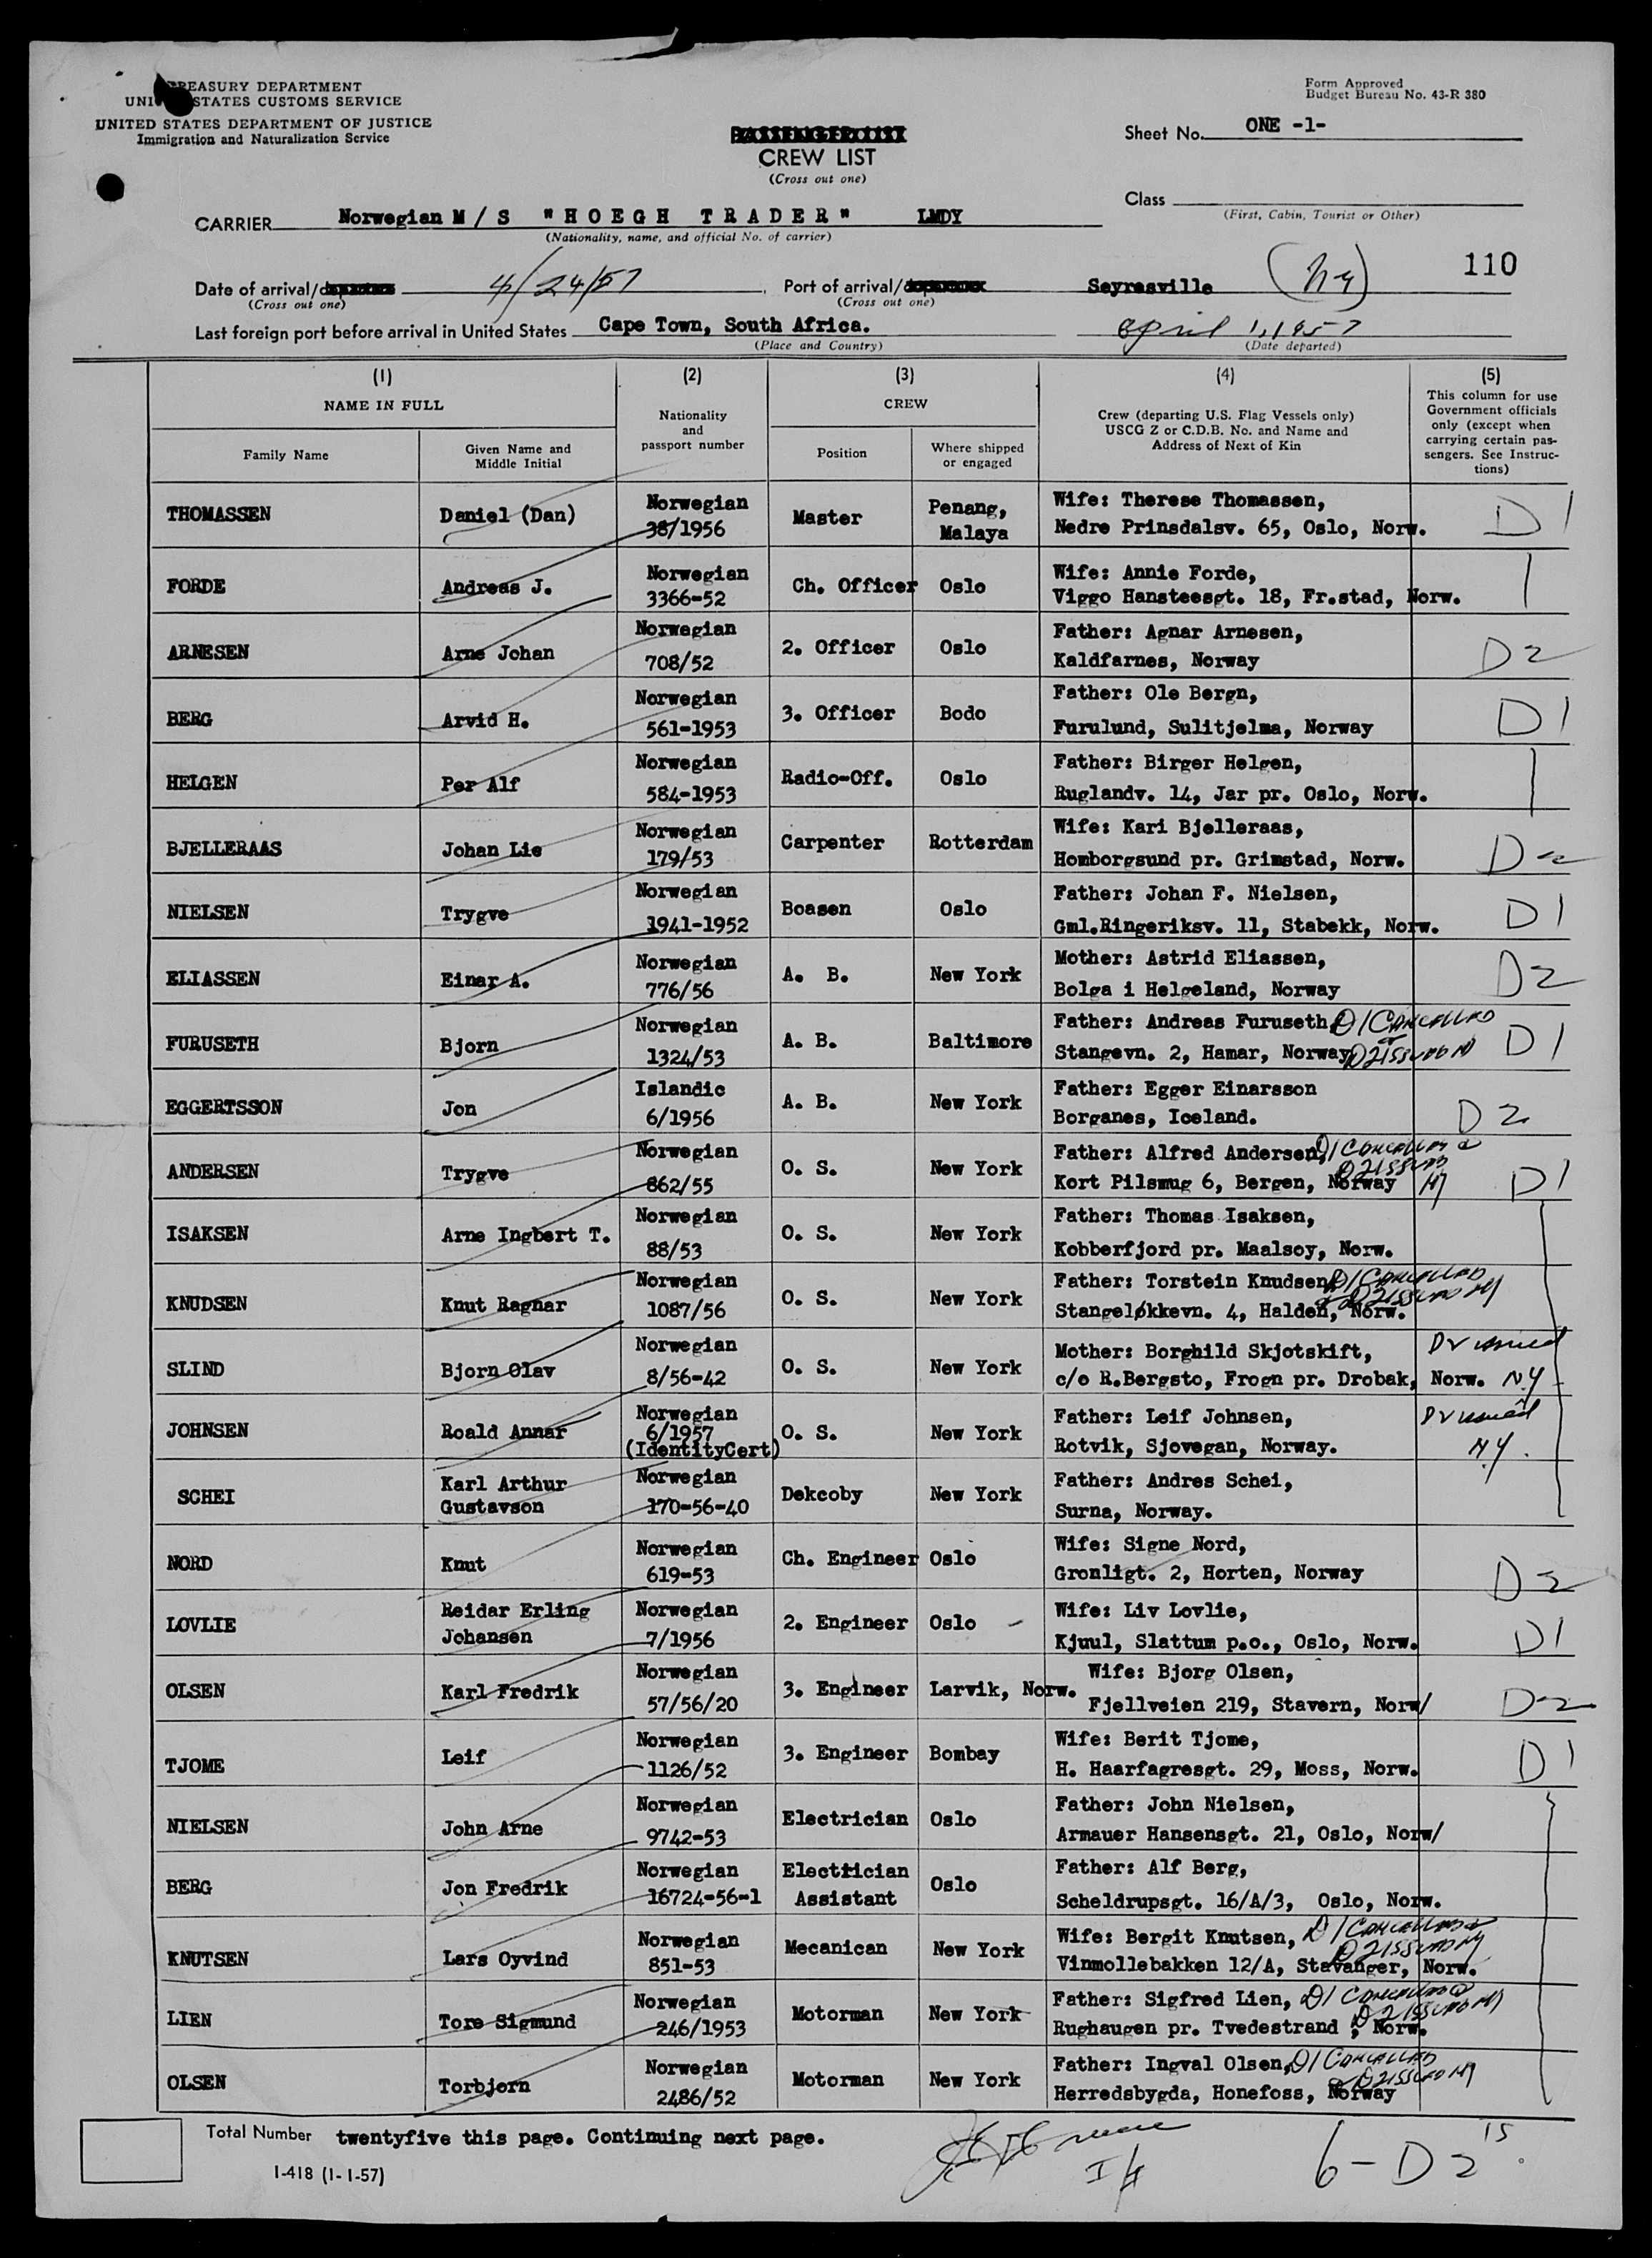 TREASURY DEPARTMENT
UNITED STATES CUSTOMS SERVICE
UNITED STATES DEPARTMENT OF JUSTICE
Immigration and Naturalization Service
Form Approved
Budget Bureau No. 43-R 380
PASSENGER LIST
CREW LIST
(Cross out one)
Sheet No. ONE -1-
Class
(First, Cabin, Tourist or Other)
CARRIER Norwegian M/S "HOEGH TRADER" LMDY
(Nationality, name, and official No. of carrier)
110
Date of arrival/ 4/24/57 Port of arrival/ Sayresville (NY)
(Cross out one) (Cross out one)
Last foreign port before arrival in United States Cape Town, South Africa. April 1, 1957
(Place and Country) (Date departed)
(1) (2) (3) (4) (5)
NAME IN FULL
Family Name
Given Name and Middle Initial
Nationality and passport number
CREW
Position
Where shipped or engaged
Crew (departing U.S. Flag Vessels only)
USCG Z or C.D.B. No. and Name and
Address of Next of Kin
This column for use
Government officials
only (except when
carrying certain pas-
sengers. See Instruc-
tions)
THOMASSEN Daniel (Dan) Norwegian 38/1956 Master Penang, Malaya Wife: Therese Thomassen, Nedre Prinsdalsv. 65, Oslo, Norw. D1
FORDE Andreas J. Norwegian 3366-52 Ch. Officer Oslo Wife: Annie Forde, Viggo Hansteesgt. 18, Fr.stad, Norw.
ARNESEN Arne Johan Norwegian 708/52 2. Officer Oslo Father: Agnar Arnesen, Kaldfarnes, Norway D2
BERG Arvid H. Norwegian 561-1953 3. Officer Bodo Father: Ole Bergn, Furulund, Sulitjelma, Norway D1
HELGEN Per Alf Norwegian 584-1953 Radio-Off. Oslo Father: Birger Helgen, Ruglandv. 14, Jar pr. Oslo, Norw.
BJELLERAAS Johan Lie Norwegian 179/53 Carpenter Rotterdam Wife: Kari Bjelleraas, Homborgsund pr. Grimstad, Norw. D2
NIELSEN Trygve Norwegian 1941-1952 Boasen Oslo Father: Johan F. Nielsen, Gml.Ringeriksv. 11, Stabekk, Norw. D1
ELIASSEN Einar A. Norwegian 776/56 A. B. New York Mother: Astrid Eliassen, Bolga i Helgeland, Norway D2
FURUSETH Bjorn Norwegian 1324/53 A. B. Baltimore Father: Andreas Furuseth, Stangevn. 2, Hamar, Norway D1 CANCELLED D2 ISSUED NY D1
EGGERTSSON Jon Islandic 6/1956 A. B. New York Father: Egger Einarsson Borganes, Iceland. D2
ANDERSEN Trygve Norwegian 862/55 O. S. New York Father: Alfred Andersen, Kort Pilsmug 6, Bergen, Norway D1 CANCELLED D2 ISSUED NY D1
ISAKSEN Arne Ingbert T. Norwegian 88/53 O. S. New York Father: Thomas Isaksen, Kobberfjord pr. Maalsoy, Norw.
KNUDSEN Knut Ragnar Norwegian 1087/56 O. S. New York Father: Torstein Knudsen, Stangeløkkevn. 4, Halden, Norw. D1 CANCELLED D2 ISSUED NY
SLIND Bjorn Olav Norwegian 8/56-42 O. S. New York Mother: Borghild Skjotskift, c/o R.Bergsto, Frogn pr. Drobak, Norw. D2 issued N.Y
JOHNSEN Roald Annar Norwegian 6/1957 (IdentityCert) O. S. New York Father: Leif Johnsen, Rotvik, Sjovegan, Norway. D2 issued N.Y.
SCHEI Karl Arthur Gustavson Norwegian 170-56-40 Dekcoby New York Father: Andres Schei, Surna, Norway.
NORD Knut Norwegian 619-53 Ch. Engineer Oslo Wife: Signe Nord, Gronligt. 2, Horten, Norway D2
LOVLIE Reidar Erling Johansen Norwegian 7/1956 2. Engineer Oslo Wife: Liv Lovlie, Kjuul, Slattum p.o., Oslo, Norw. D1
OLSEN Karl Fredrik Norwegian 57/56/20 3. Engineer Larvik, Norw. Wife: Bjorg Olsen, Fjellveien 219, Stavern, Norw/ D2
TJOME Leif Norwegian 1126/52 3. Engineer Bombay Wife: Berit Tjome, H. Haarfagresgt. 29, Moss, Norw. D1
NIELSEN John Arne Norwegian 9742-53 Electrician Oslo Father: John Nielsen, Armauer Hansensgt. 21, Oslo, Norw/
BERG Jon Fredrik Norwegian 16724-56-1 Electrician Assistant Oslo Father: Alf Berg, Scheldrupsgt. 16/A/3, Oslo, Norw.
KNUTSEN Lars Oyvind Norwegian 851-53 Mecanican New York Wife: Bergit Knutsen, Vinmollebakken 12/A, Stavanger, Norw. D1 CANCELLED D2 ISSUED NY
LIEN Tore Sigmund Norwegian 246/1953 Motorman New York Father: Sigfred Lien, Rughaugen pr. Tvedestrand, Norw. D1 CANCELLED D2 ISSUED NY
OLSEN Torbjorn Norwegian 2486/52 Motorman New York Father: Ingval Olsen, Herredsbygda, Honefoss, Norway D1 CANCELLED D2 ISSUED NY
Total Number twentyfive this page. Continuing next page.
I-418 (1-1-57)
6-D2 15